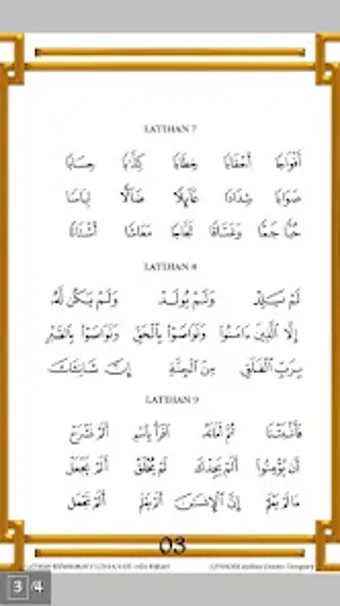 LATIHAN 7
أَفْوَاجًا أَحْقَابًا خِطَابًا كِذَّابًا حِسَابًا
صَوَابًا شِدَادًا عَآئِلًا ضَآلًّا لِبَاسًا
حُبًّا جَمًّا وَغَسَّاقًا ثَجَّاجًا مَعَاشًا أَشْتَاتًا
LATIHAN 8
لَمْ يَلِدْ وَلَمْ يُولَدْ وَلَمْ يَكُن لَّهُ
إِلَّا الَّذِينَ ءَامَنُوا وَتَوَاصَوْا بِالْحَقِّ وَتَوَاصَوْا بِالصَّبْرِ
بِرَبِّ الْفَلَقِ مِنَ الْجِنَّةِ إِنَّ شَانِئَكَ
LATIHAN 9
ثُمَّ أَمَاتَهُ اقْرَأْ بِاسْمِ أَلَمْ نَشْرَحْ
أَن يُؤْمِنُوا أَلَمْ يَجِدْكَ لَمْ يُخْلَقْ أَلَمْ يَجْعَلْ
مَا لَمْ يَعْلَمْ إِنَّ الْإِنسَٰنَ أَلَمْ يَعْلَم أَلَمْ نَجْعَل
03
3 /4